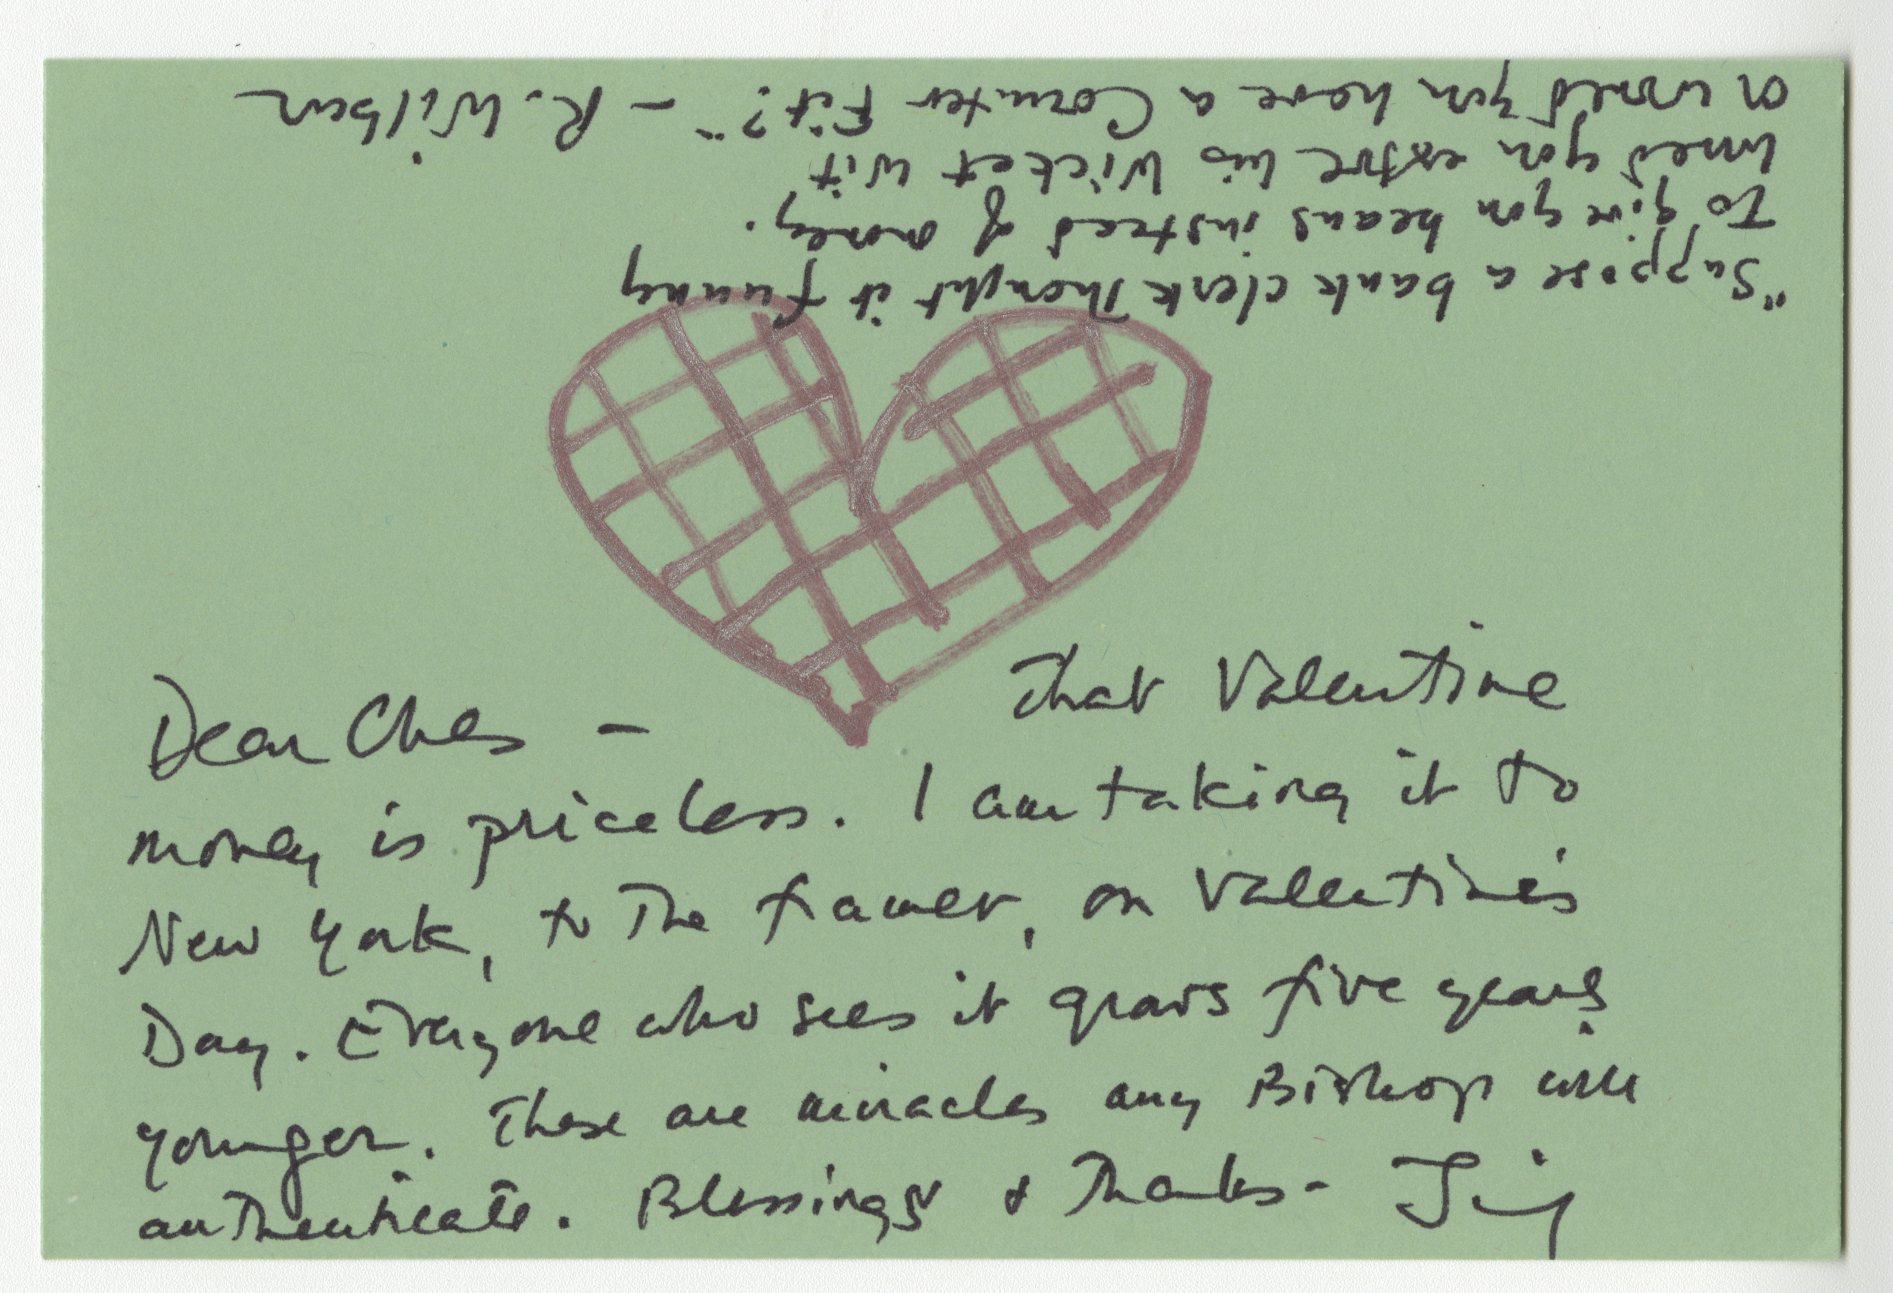 Dear Ches — That Valentine
money is priceless. I am taking it to
New York, to the framer, on Valentine's
Day. Everyone who sees it grows five years
younger. These are miracles any Bishop will
authenticate. Blessings & Thanks-
"Suppose a bank clerk thought it funny
To give you beans instead of money.
Would you extol his Wicket wit
Or would you have a Counter Fit?" — R. Wilbur